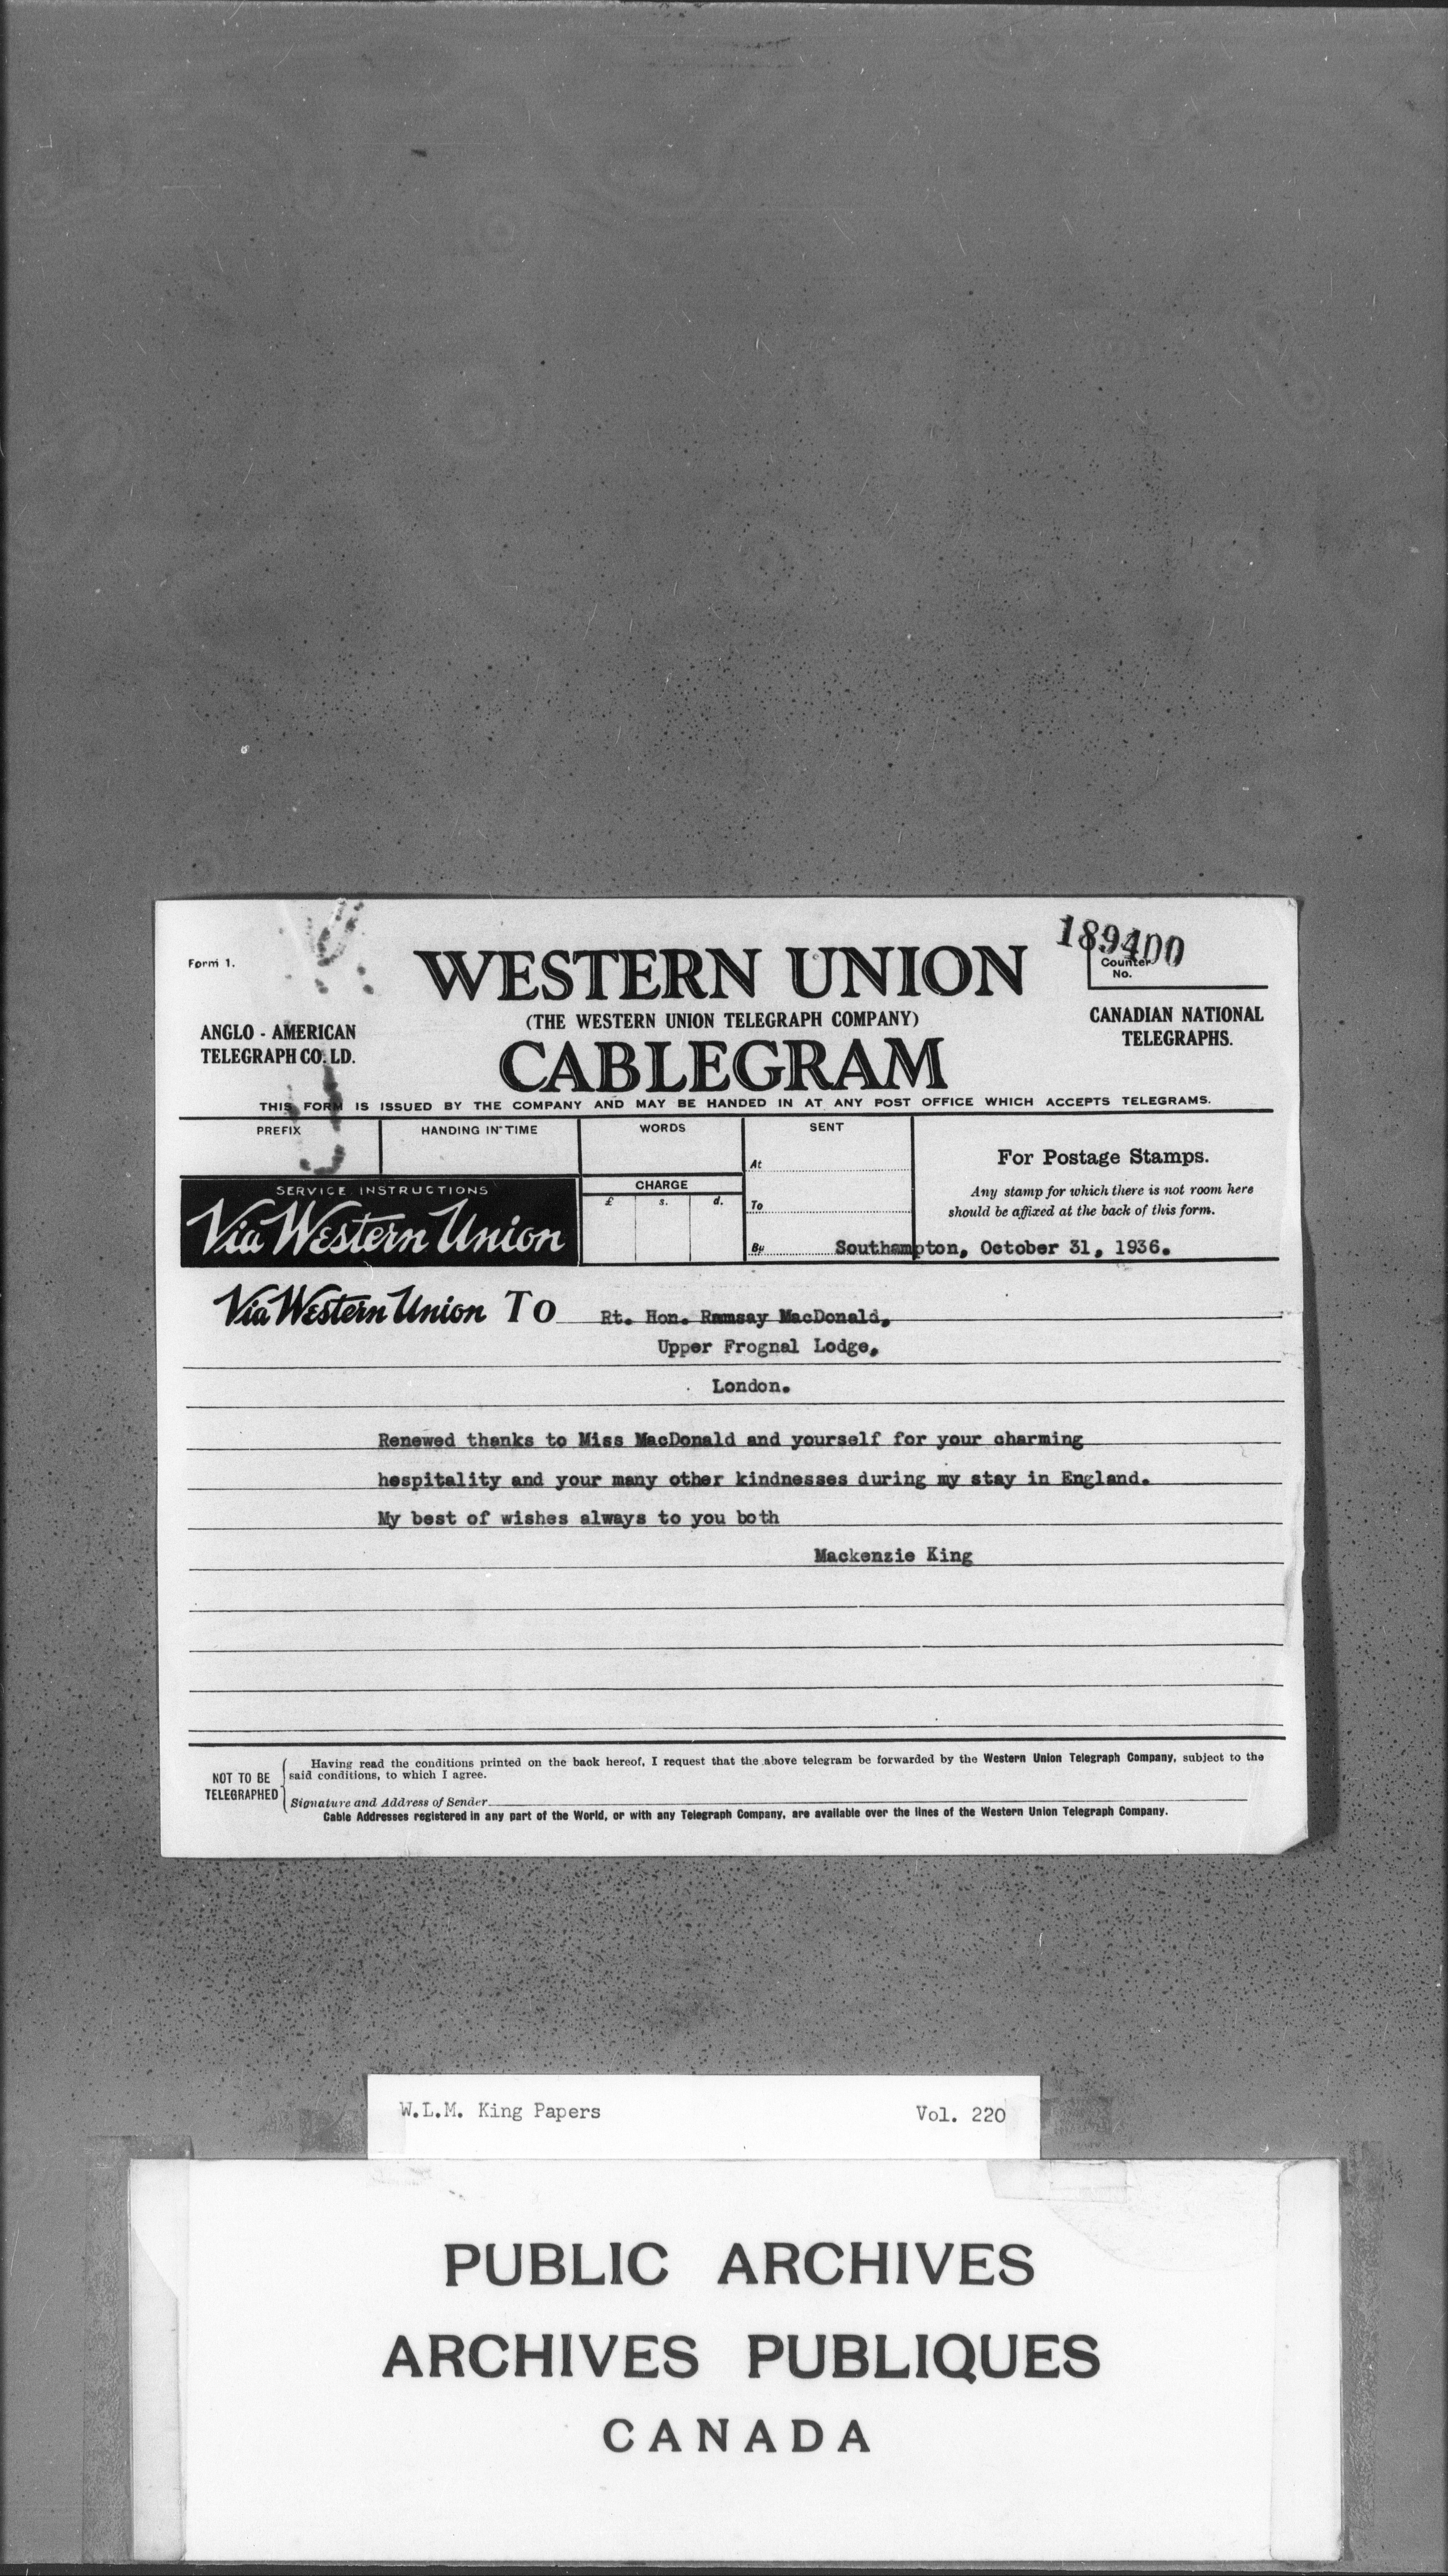 Form 1.
WESTERN UNION
189400
Counter No.
(THE WESTERN UNION TELEGRAPH COMPANY)
ANGLO - AMERICAN
TELEGRAPH CO. LD.
CABLEGRAM
CANADIAN NATIONAL
TELEGRAPHS.
THIS FORM IS ISSUED BY THE COMPANY AND MAY BE HANDED IN AT ANY POST OFFICE WHICH ACCEPTS TELEGRAMS.
PREFIX
HANDING IN TIME
WORDS
SENT
At
To
By
CHARGE
£ s. d.
For Postage Stamps.
Any stamp for which there is not room here
should be affixed at the back of this form.
SERVICE INSTRUCTIONS
Via Western Union
Southampton, October 31, 1936.
Via Western Union TO Rt. Hon. Ramsay MacDonald,
Upper Frognal Lodge,
London.
Renewed thanks to Miss MacDonald and yourself for your charming
hospitality and your many other kindnesses during my stay in England.
My best of wishes always to you both
Mackenzie King
NOT TO BE
TELEGRAPHED
Having read the conditions printed on the back hereof, I request that the above telegram be forwarded by the Western Union Telegraph Company, subject to the
said conditions, to which I agree.
Signature and Address of Sender
Cable Addresses registered in any part of the World, or with any Telegraph Company, are available over the lines of the Western Union Telegraph Company.
W.L.M. King Papers Vol. 220
PUBLIC ARCHIVES
ARCHIVES PUBLIQUES
CANADA